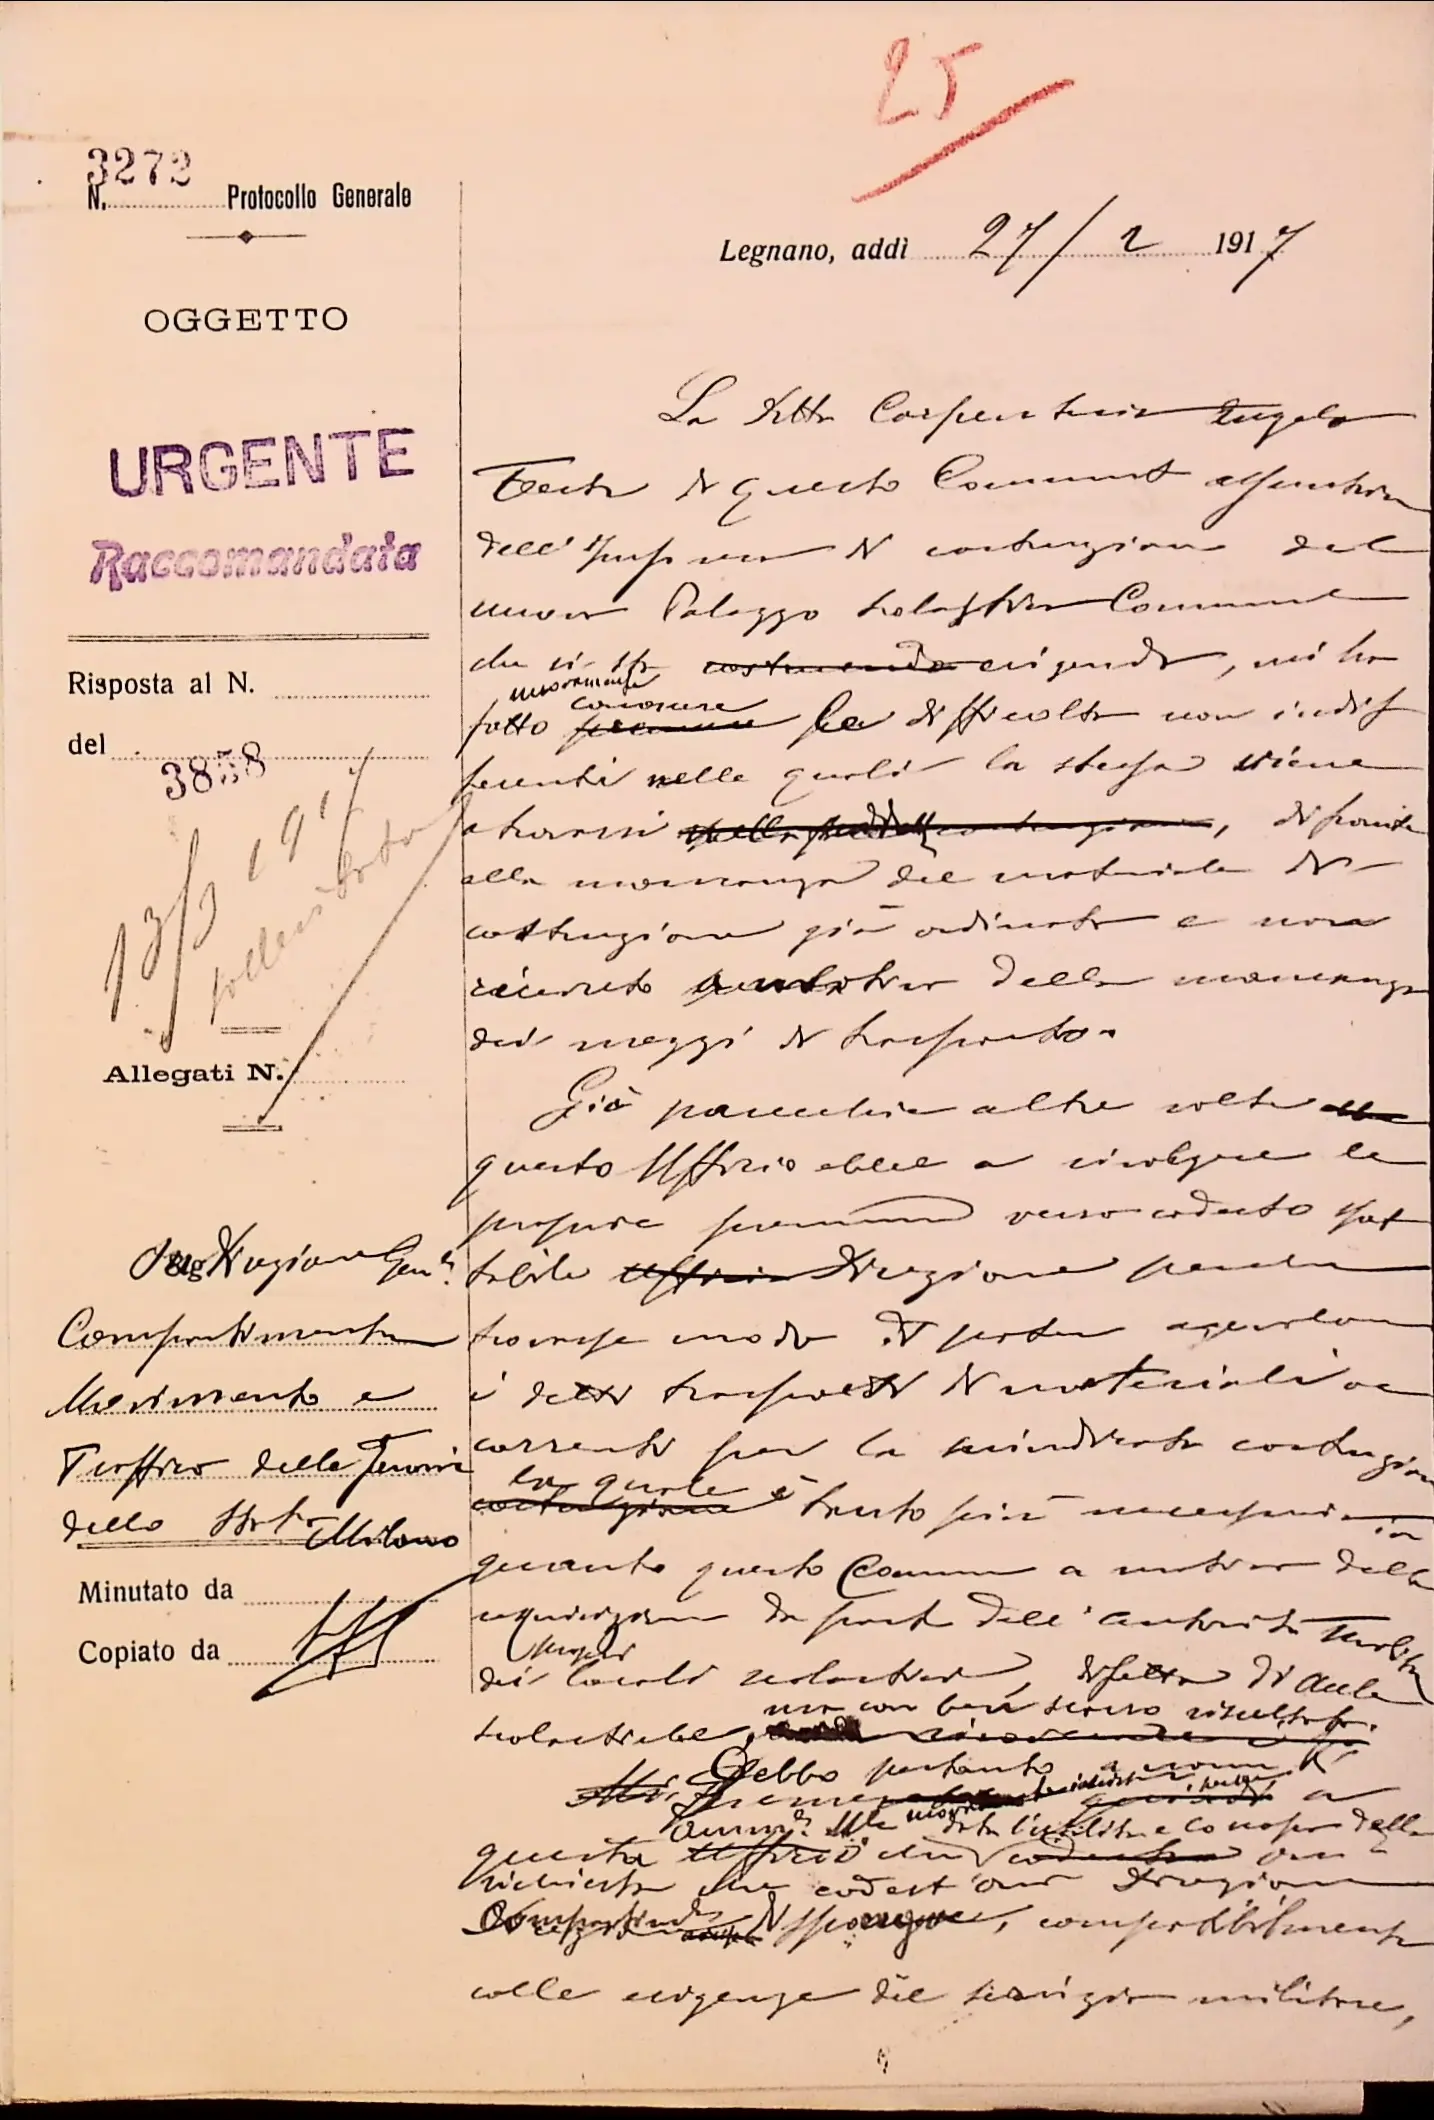 25
3272
N. Protocollo Generale
Legnano, addì 27/2 1917
OGGETTO
URGENTE
Raccomandata
Risposta al N.
del
3858
13/3 1917
sollecitato
Allegati N.
Direzione Gen.
Compartimentale
Movimento e
Traffico delle Ferrovie
dello Stato Milano
Minutato da
Copiato da
La Ditta Carpenteria Angelo
di questo Comune assuntrice
dell'Impresa di costruzione del
nuovo Palazzo scolastico Comunale
che si sta costruendo erigendo, mi ha
nuovamente conoscere
fatto le difficoltà non indif
ferenti nelle quali la stessa viene
a trovarsi, di fronte
alla mancanza del materiale di
costruzione già ordinato e non
ricevuto a motivo della mancanza
dei mezzi di trasporto.
Già parecchie altre volte
questo Ufficio ebbe a rivolgere le
proprie premure verso codesta spet
tabile Ufficio Direzione perchè
trovasse modo di poter agevolare
i detti trasporti di materiali oc
correnti per la suindicata costruzione
la quale
costruzione è tanto più necessaria in
quanto questo Comune a motivo della
requisizione da parte dell'autorità Militare
dei locali scolastici, difetta di aule
ma con ben scarso risultato.
scolastiche,
Debbo pertanto a nome di
a
questa Ufficio
richiesta che codest'On. Direzione
disponga, compatibilmente
colle esigenze del servizio militare,